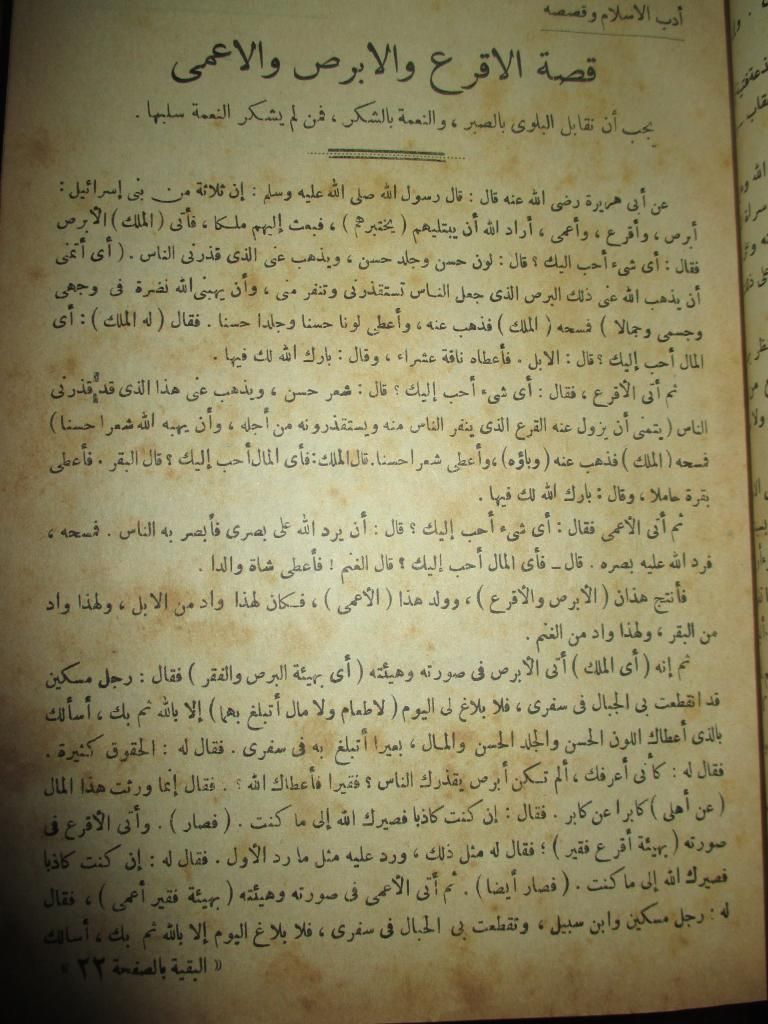 أدب الاسلام وقصصه
قصة الاقرع والابرص والاعمى
يجب أن نقابل البلوى بالصبر ، والنعمة بالشكر ، فمن لم يشكر النعمة سلبها .
عن أبى هريرة رضى الله عنه قال : قال رسول الله صلى الله عليه وسلم : إن ثلاثة من بنى إسرائيل :
أبرص ، وأقرع ، وأعمى ، أراد الله أن يبتليهم ( يختبرهم ) ، فبعث إليهم ملكا ، فأتى ( الملك ) الأبرص
فقال : أى شىء أحب اليك ؟ قال : لون حسن وجلد حسن ، ويذهب عنى الذى قذرنى الناس . ( أى أتمنى
أن يذهب الله عنى ذلك البرص الذى جعل الناس تستقذرنى وتنفر منى ، وأن يهبنى الله نضرة فى وجهى
وجسمى وجمالا ) فمسحه ( الملك ) فذهب عنه ، وأعطى لونا حسنا وجلدا حسنا . فقال ( له الملك ) : أى
المال أحب إليك ؟ قال : الابل . فأعطاه ناقة عشراء ، وقال : بارك الله لك فيها .
ثم أتى الأقرع ، فقال : أى شىء أحب إليك ؟ قال : شعر حسن ، ويذهب عنى هذا الذى قد قذرنى
الناس ( يتمنى أن يزول عنه القرع الذى ينفر الناس منه ويستقذرونه من أجله ، وأن يهبه الله شعرا حسنا )
فمسحه ( الملك ) فذهب عنه ( وباؤه ) ، وأعطى شعرا حسنا . قال الملك : فأى المال أحب إليك ؟ قال البقر . فأعطى
بقرة حاملا ، وقال : بارك الله لك فيها .
ثم أتى الأعمى فقال : أى شىء أحب إليك ؟ قال : أن يرد الله على بصرى فأبصر به الناس . فمسحه ،
فرد الله عليه بصره . قال ـ فأى المال أحب إليك ؟ قال الغنم ! فأعطى شاة والدا .
فأنتج هذان ( الأبرص والأقرع ) ، وولد هذا ( الأعمى ) ، فكان لهذا واد من الابل ، ولهذا واد
من البقر ، ولهذا واد من الغنم .
ثم إنه ( أى الملك ) أتى الأبرص فى صورته وهيئته ( أى بهيئة البرص والفقر ) فقال : رجل مسكين
قد انقطعت بى الجبال فى سفرى ، فلا بلاغ لى اليوم ( لاطعام ولا مال أتبلغ بهما ) إلا بالله ثم بك ، أسألك
بالذى أعطاك اللون الحسن والجلد الحسن والمال ، بعيرا أتبلغ به فى سفرى . فقال له : الحقوق كثيرة .
فقال له : كأنى أعرفك ، ألم تكن أبرص يقذرك الناس ؟ فقيرا فأعطاك الله ؟ . فقال إنما ورثت هذا المال
( عن أهلى ) كابرا عن كابر . فقال : إن كنت كاذبا فصيرك الله إلى ما كنت . ( فصار ) . وأتى الأقرع فى
صورته ( بهيئة أقرع فقير ) ؛ فقال له مثل ذلك ، ورد عليه مثل ما رد الأول . فقال له : إن كنت كاذبا
فصيرك الله إلى ما كنت . ( فصار أيضا ) . ثم أتى الأعمى فى صورته وهيئته ( بهيئة فقير أعمى ) ، فقال
له : رجل مسكين وابن سبيل ، وتقطعت بى الحبال فى سفرى ، فلا بلاغ اليوم إلا بالله ثم بك ، أسالك
« البقية بالصفحة ٢٢ »